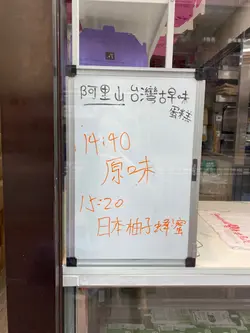 阿里山 台灣古早味
蛋糕
14:40
原味
15:20
日本柚子蜂蜜